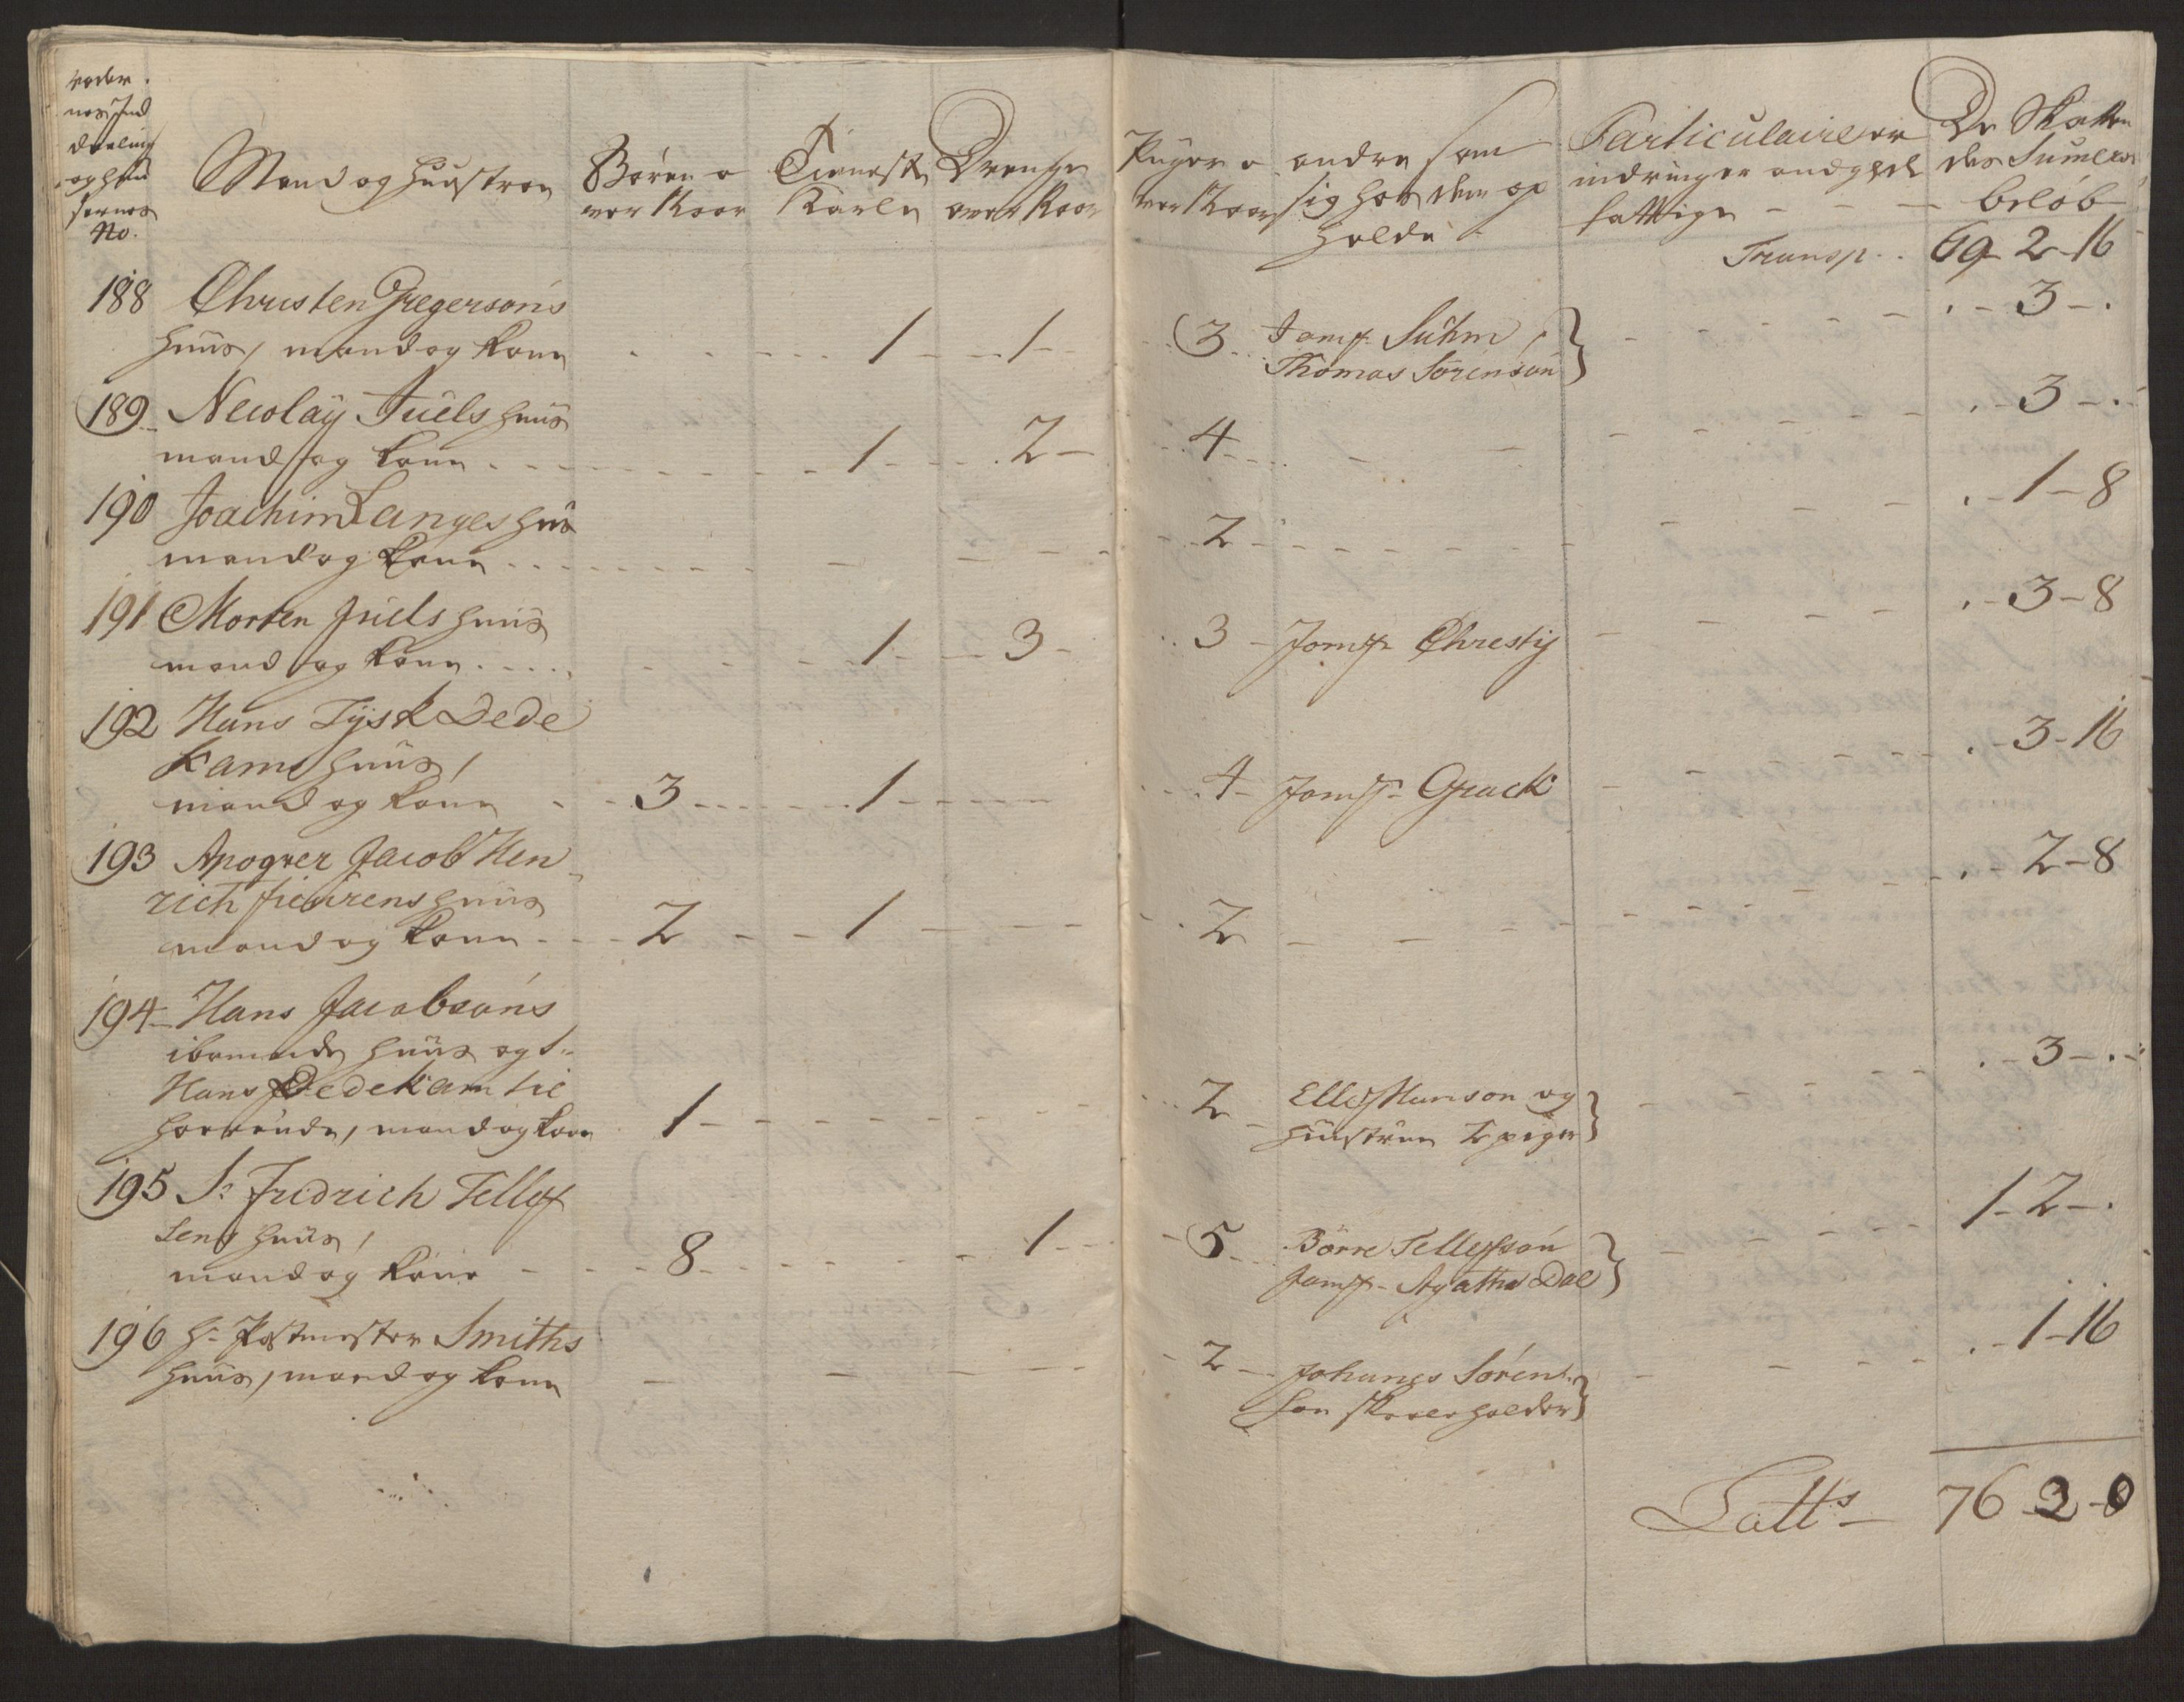 roder
nes Ind
deeling
og huu
sernes
No.
Mand og Huustroe
Børen o
ver 1 Aar
Tieneste
Karle
Drenge
over 1 Aar
Piiger o
ver 1 Aar
andre som
sig hos dem op
holde
Particulaire er
indringer andgede
fattige
De Skatten
des Sumers
beløb
Transp. 69-2-16
188 Christen Gregersøns
huus, mand og kone 1 1 3 Jomf. Suhm
Thomas Sørensøn 3
189 Nicolaÿ Juels huus
mand og kone 1 2 4 3
190 Joachim Langes huus
mand og kone 2 1-8
191 Morten Juels huus
mand og kone 1 3 3 Jomfr Christij 3-8
192 Hans Tÿsk Dede
kams huus,
mand og kone 3 1 4 Jomfr Grack 3-16
193 Jacob Hen
rich huus
mand og kone 2 1 2 2-8
194 Hans Jacobsøns
iboende huus og Sr
Hans Dedekam til
hørende, mand og kone 1 2 Ellef Hanson og
huustrue 2 piger 3
195 Sr Fridrich Tellef
sens huus,
mand og kone 8 1 5 Børre Tellefsøn
Jomfr Agatha Dal 1-2
196 Hr Postmester Smiths
huus, mand og kone 2 Johanes Sørens
søn Skoleholder 1-16
Latts 76-2-0